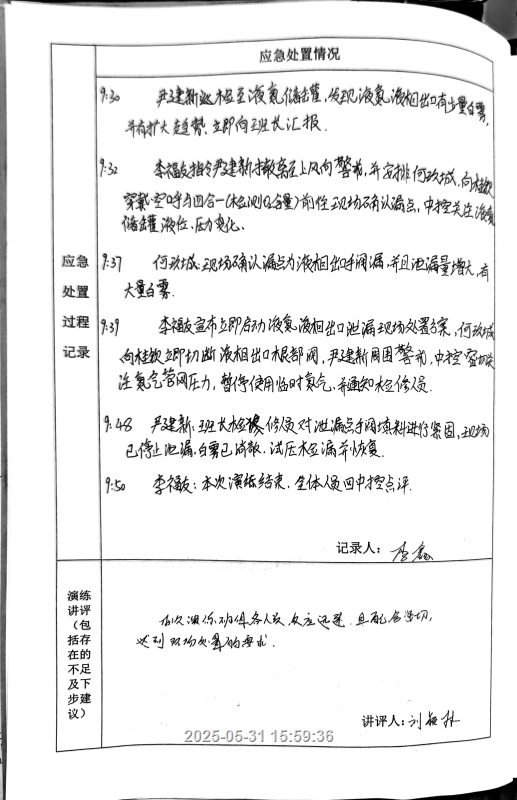 应急处置情况
9:30 尹建新巡检至液氮储罐,发现液氮液相出口有少量白雾,
并有扩大趋势,立即向班长汇报.
9:32 李福敏指令尹建新撤离至上风向警戒,并安排何玖城,向桂钦
穿戴空呼与四合一(检测O2含量)前往现场确认漏点,中控关注液氮
储罐液位、压力变化、
9:37 何玖城:现场确认漏点为液相出口手阀漏,并且泄漏量增大,有
大量白雾.
9:39 李福敏宣布立即启动液氮液相出口泄漏现场处置方案,何玖城
向桂钦立即切断液相出口根部阀,尹建新周围警戒,中控密切关
注氮气管网压力,暂停使用临时氮气,并通知检修人员.
9:48 尹建新:班长检修员对泄漏点手阀填料进行紧固,现场
已停止泄漏,白雾已消散,试压检漏并恢复.
9:50 李福敏:本次演练结束,全体人员回中控点评.
应急
处置
过程
记录
记录人:李鑫
演练
讲评
(包
括存
在的
不足
及下
步建
议)
本次演练,班组各人员反应迅速,且配合密切,
达到现场处置的要求.
讲评人:刘
2025-05-31 15:59:36